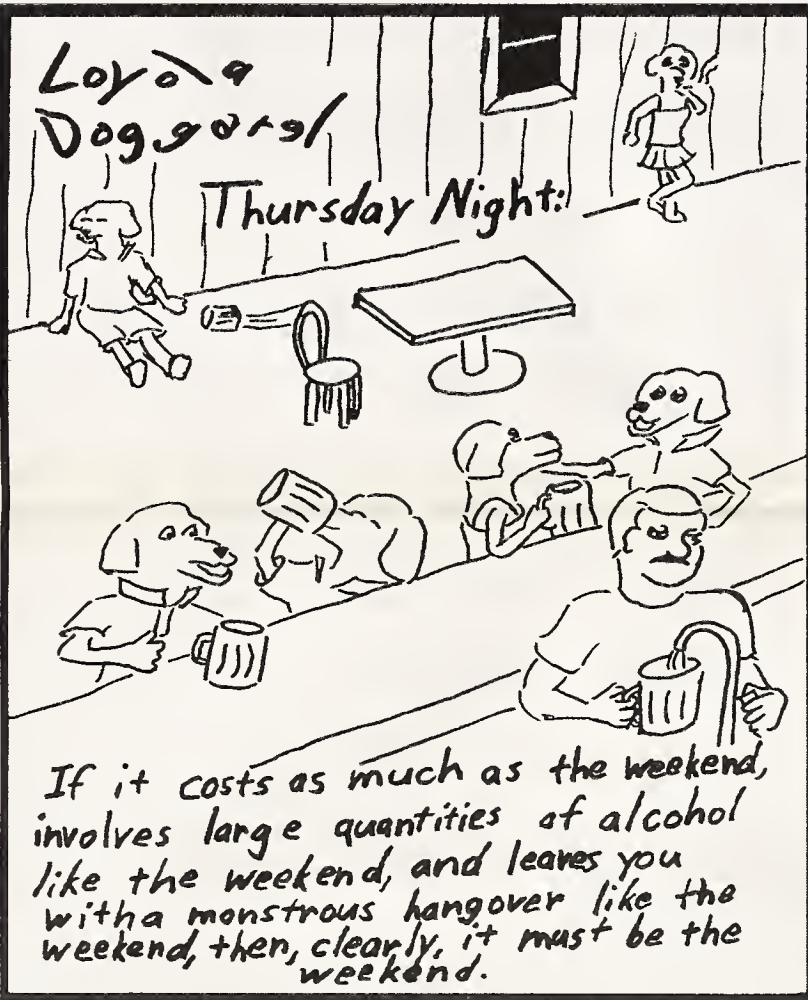 Loyola
Doggerel
Thursday Night:
If it costs as much as the weekend,
involves large quantities of alcohol
like the weekend, and leaves you
with a monstrous hangover like the
weekend, then, clearly, it must be the
weekend.